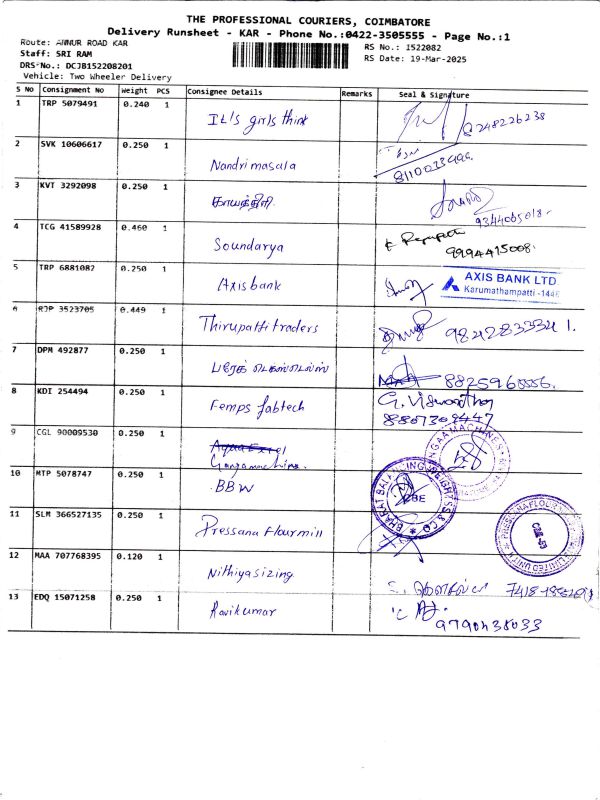 THE PROFESSIONAL COURIERS, COIMBATORE
Delivery Runsheet - KAR - Phone No.:0422-3505555 - Page No.:1
Route: ANNUR ROAD KAR
Staff: SRI RAM
DRS No.: DCJB152208201
Vehicle: Two Wheeler Delivery
RS No.: 1522082
RS Date: 19-Mar-2025
S No Consignment No Weight PCS Consignee Details Remarks Seal & Signature
1 TRP 5079491 0.240 1 IL's girls think 8248226238
2 SVK 10606617 0.250 1 Nandri masala
3 KVT 3292098 0.250 1 9344065018.
4 TCG 41589928 0.460 1 Soundarya 9994415008.
5 TRP 6881082 0.250 1 Axis bank AXIS BANK LTD.
Karumathampatti
6 RJP 3523705 0.449 1 Thirupathi traders 9842833341.
7 DPM 492877 0.250 1 8825960556.
8 KDI 254494 0.250 1 Femps fabtech
9 CGL 90009530 0.250 1
10 MTP 5078747 0.250 1 BBW BHARAT BALANCING WEIGHTSS & CO
11 SLM 366527135 0.250 1 Pressana Flourmill
12 MAA 707768395 0.120 1 Nithiya sizing
13 EDQ 15071258 0.250 1 Ravikumar
9790438033